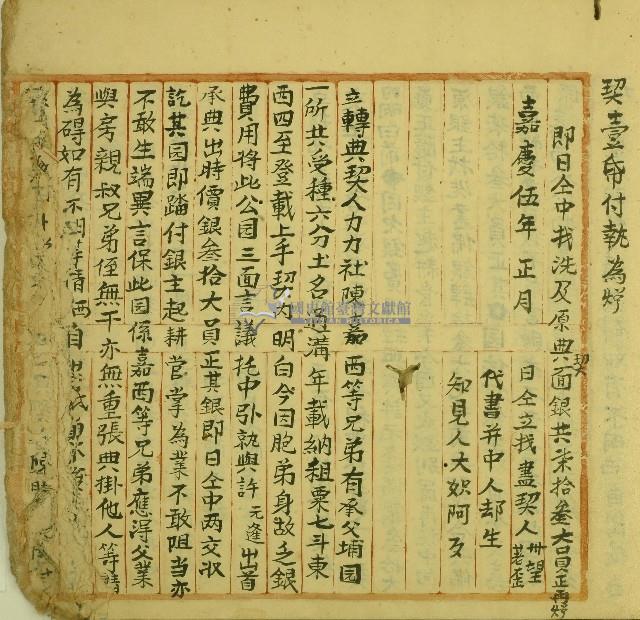 契壹帋付執為炤
即日仝中找洗及原典契面銀共柒拾叁大員正再炤
嘉慶伍年正月 日仝立找盡契人卅望 老歪
代書并中人却生
知見人大娰阿歹
立轉典契人力力社陳嘉西等兄弟有承父埔園
一所共受種六分土名滿年載納租粟七斗東
西四至登載上手契內明白今因胞弟身故乏銀
費用將此公園三面言議托中引就與許元逢出首
承典出時價銀叁拾大員正其銀即日仝中兩交收
訖其園即踏付銀主起耕管掌為業不敢阻当亦
不敢生端異言保此園係嘉西等兄弟應得父業
與房親叔兄弟侄無干亦無重張典掛他人等情
為碍如有不明等情嘉西自
國史館臺灣文獻館